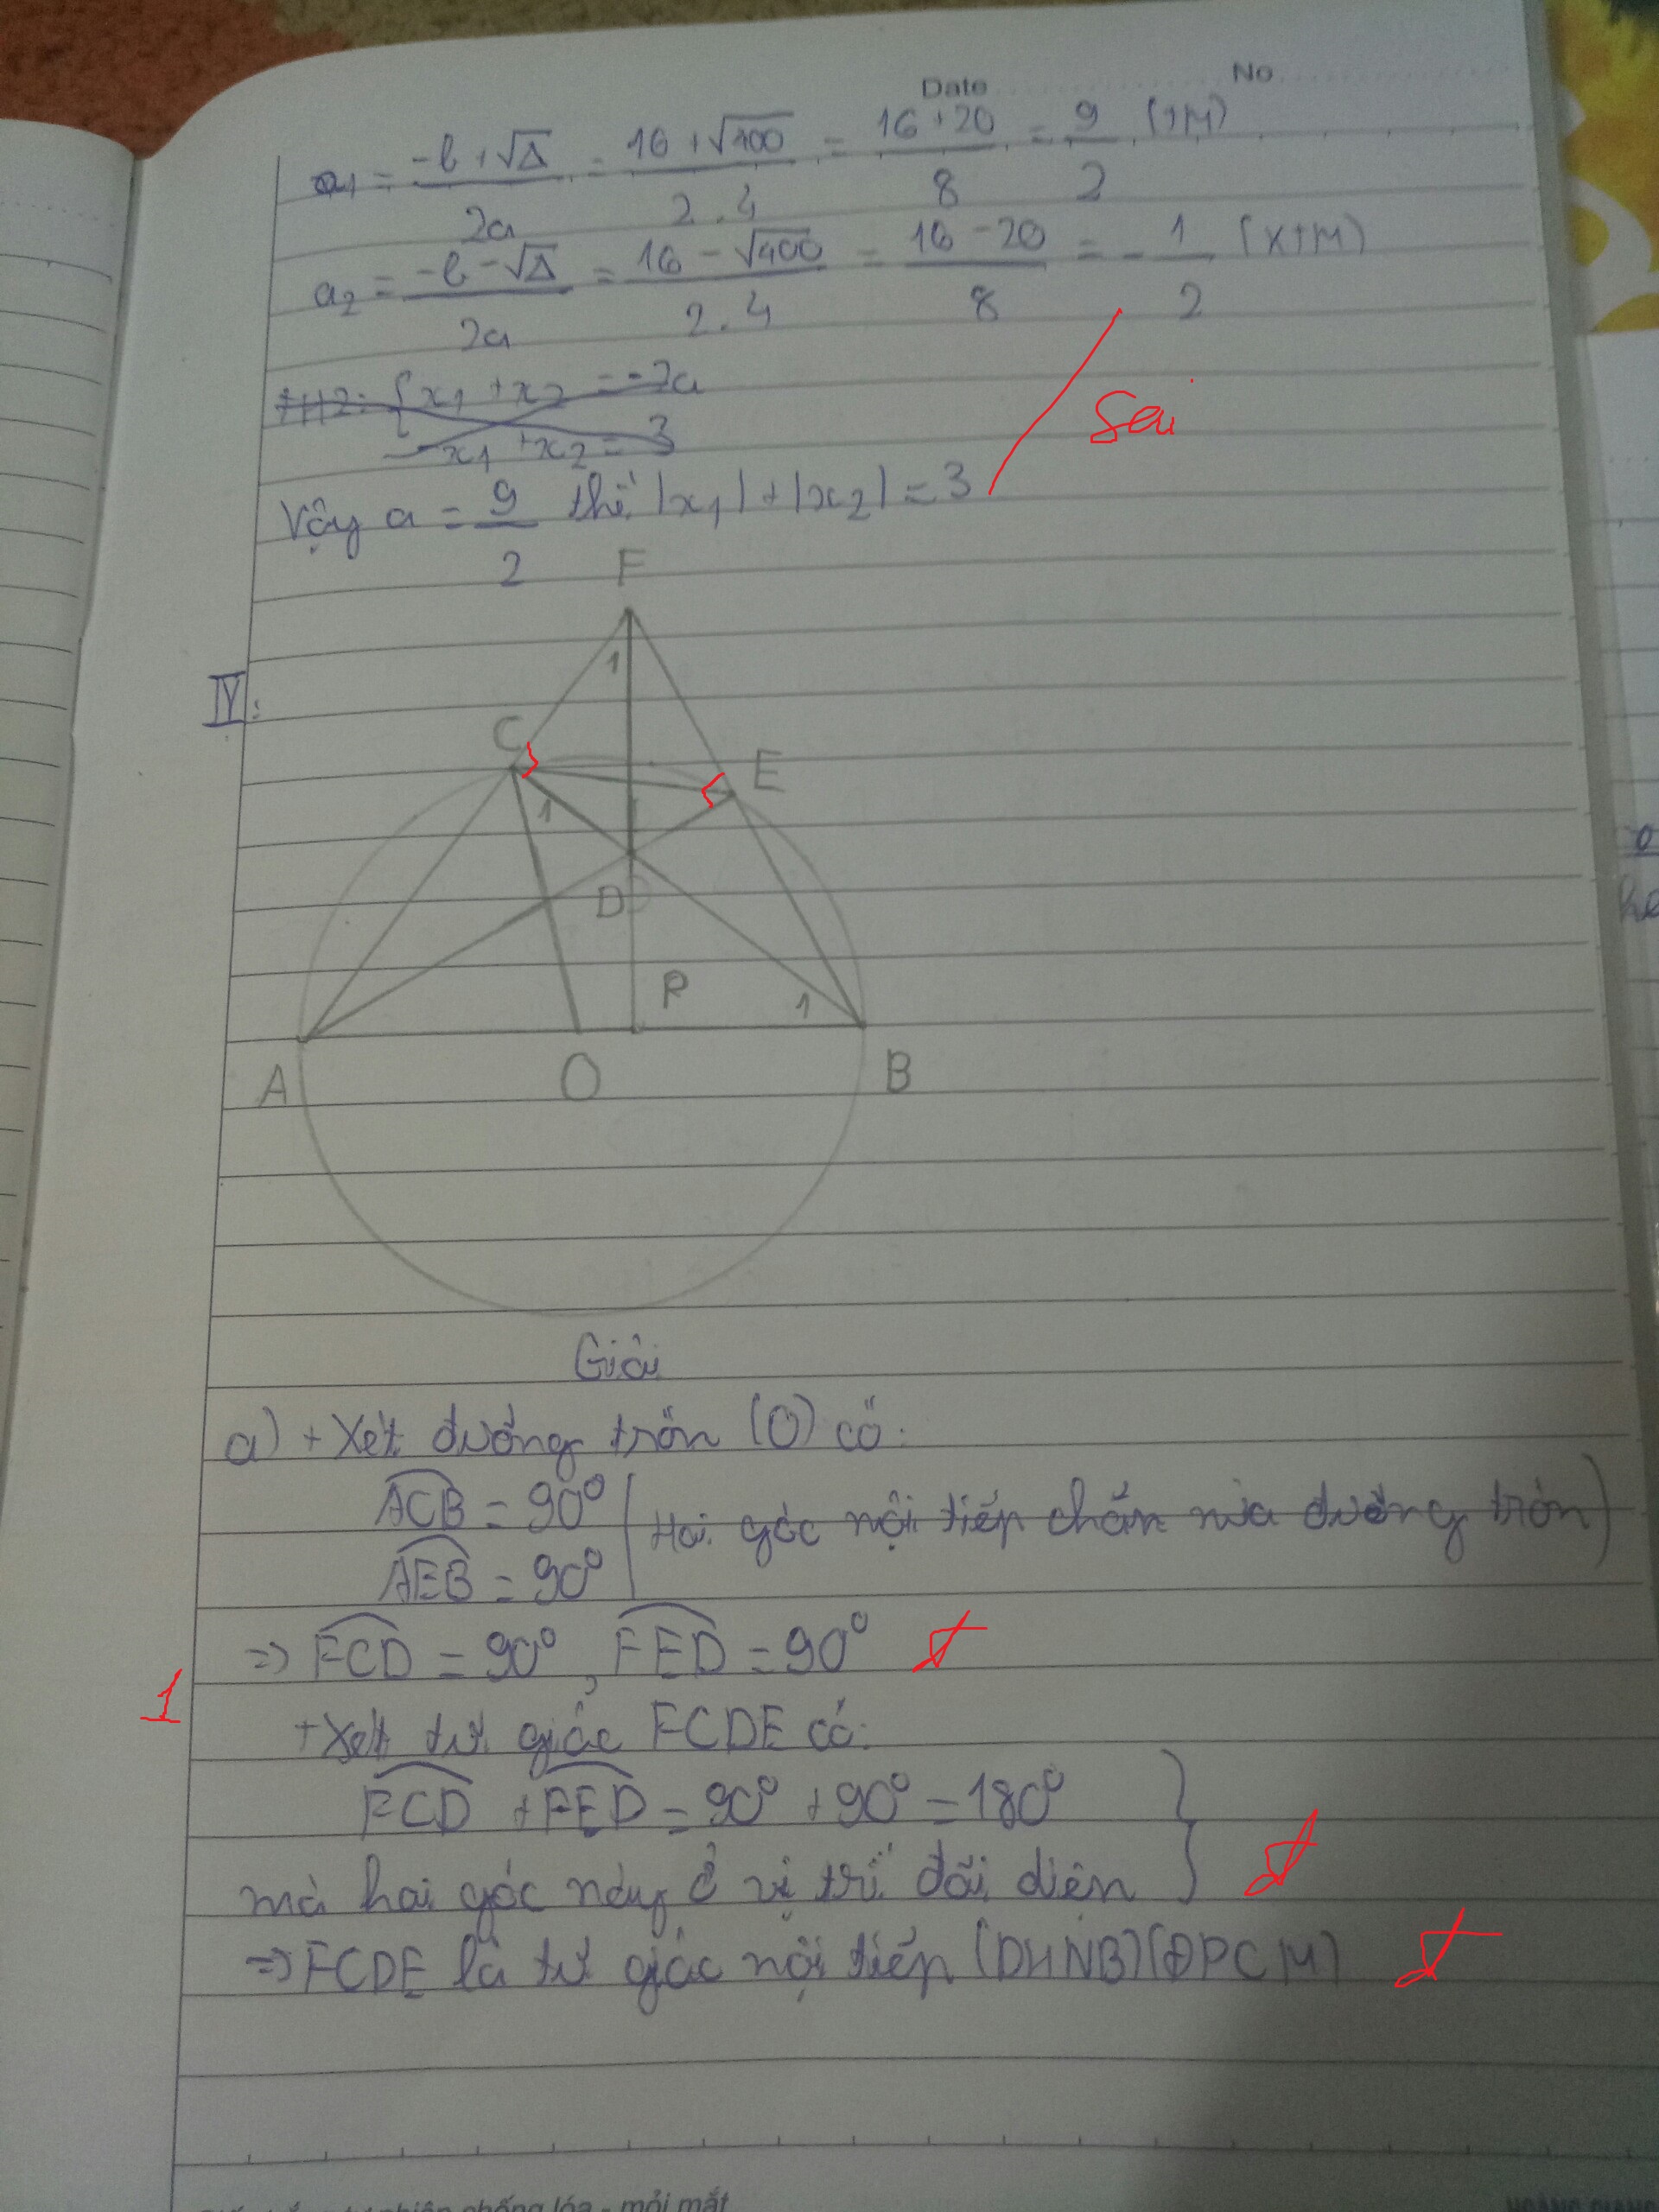 Date No
a₁ = (-b + √Δ)/2a = (16 + √400)/2.4 = (16 + 20)/8 = 9/2 (TM)
a₂ = (-b - √Δ)/2a = (16 - √400)/2.4 = (16 - 20)/8 = -1/2 (KTM)
TH2: { x₁ + x₂ = -2a
-x₁ + x₂ = 3
Sai
Vậy a = 9/2 thì |x₁| + |x₂| = 3
F
IV:
1
C
E
1
D
P
1
A
O
B
Giải
a) + Xét đường tròn (O) có:
ACB = 90°
(Hai góc nội tiếp chắn nửa đường tròn)
AEB = 90°
=> FCD = 90°, FED = 90° đ
1
+ Xét tứ giác FCDE có:
FCD + FED = 90° + 90° = 180°
mà hai góc này ở vị trí đối diện đ
=> FCDE là tứ giác nội tiếp (DHNB) (ĐPCM) đ
chống lóa - mỏi mắt